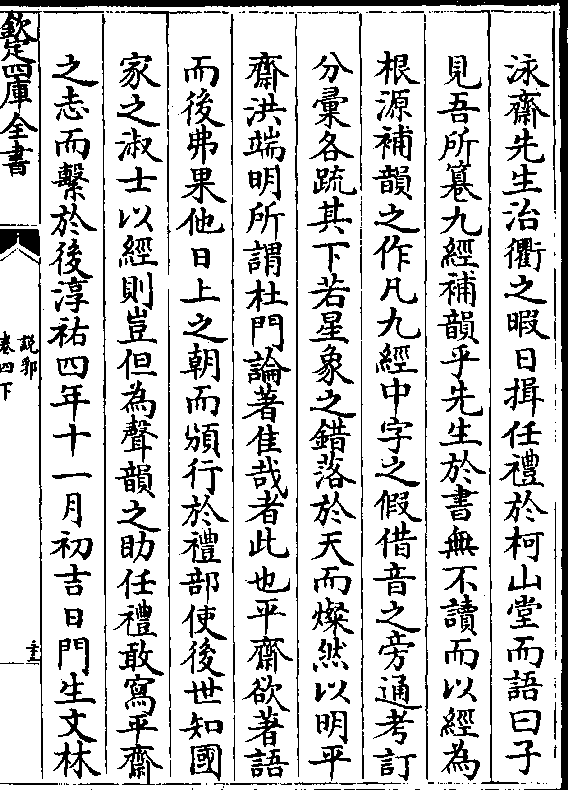 泳齋先生治衢之暇日揖任禮於柯山堂而語曰子
見吾所纂九經補韻乎先生於書無不讀而以經為
根源補韻之作凡九經中字之假借音之旁通考訂
分彙各疏其下若星象之錯落於天而燦然以明平
齋洪端明所謂杜門論著隹哉者此也平齋欲著語
而後弗果他日上之朝而頒行於禮部使後世知國
家之淑士以經則豈但為聲韻之助任禮敢寫平齋
之志而繫於後淳祐四年十一月初吉日門生文林
欽定四庫全書
說郛
卷四下